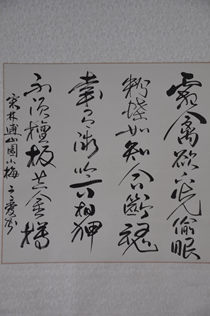 霜禽欲下先偷眼
粉蝶如知合斷魂
幸有微吟可相狎
不須檀板共金樽
宋林逋山園小梅